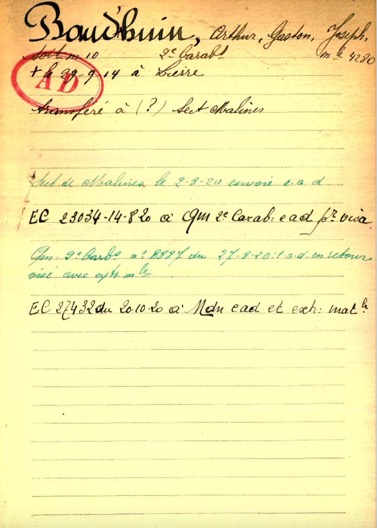 Baudhuin, Arthur, Gaston, Joseph,
Solt m 10 2e Carabs mle 4280
+ le 29-9-14 à Lierre
AD
transféré à (?) Sect Malines
Sect de Malines le 2-8-20 envoie c a d
EC 23034-14-8-20 à Qm 2e Carab: c ad pr visa
Qm 2e Carbs no 8887 du 27-8-20: c ad en retour
visé avec extr mle
EC 27432 du 20-10-20 à Mdn c ad et extr: matle